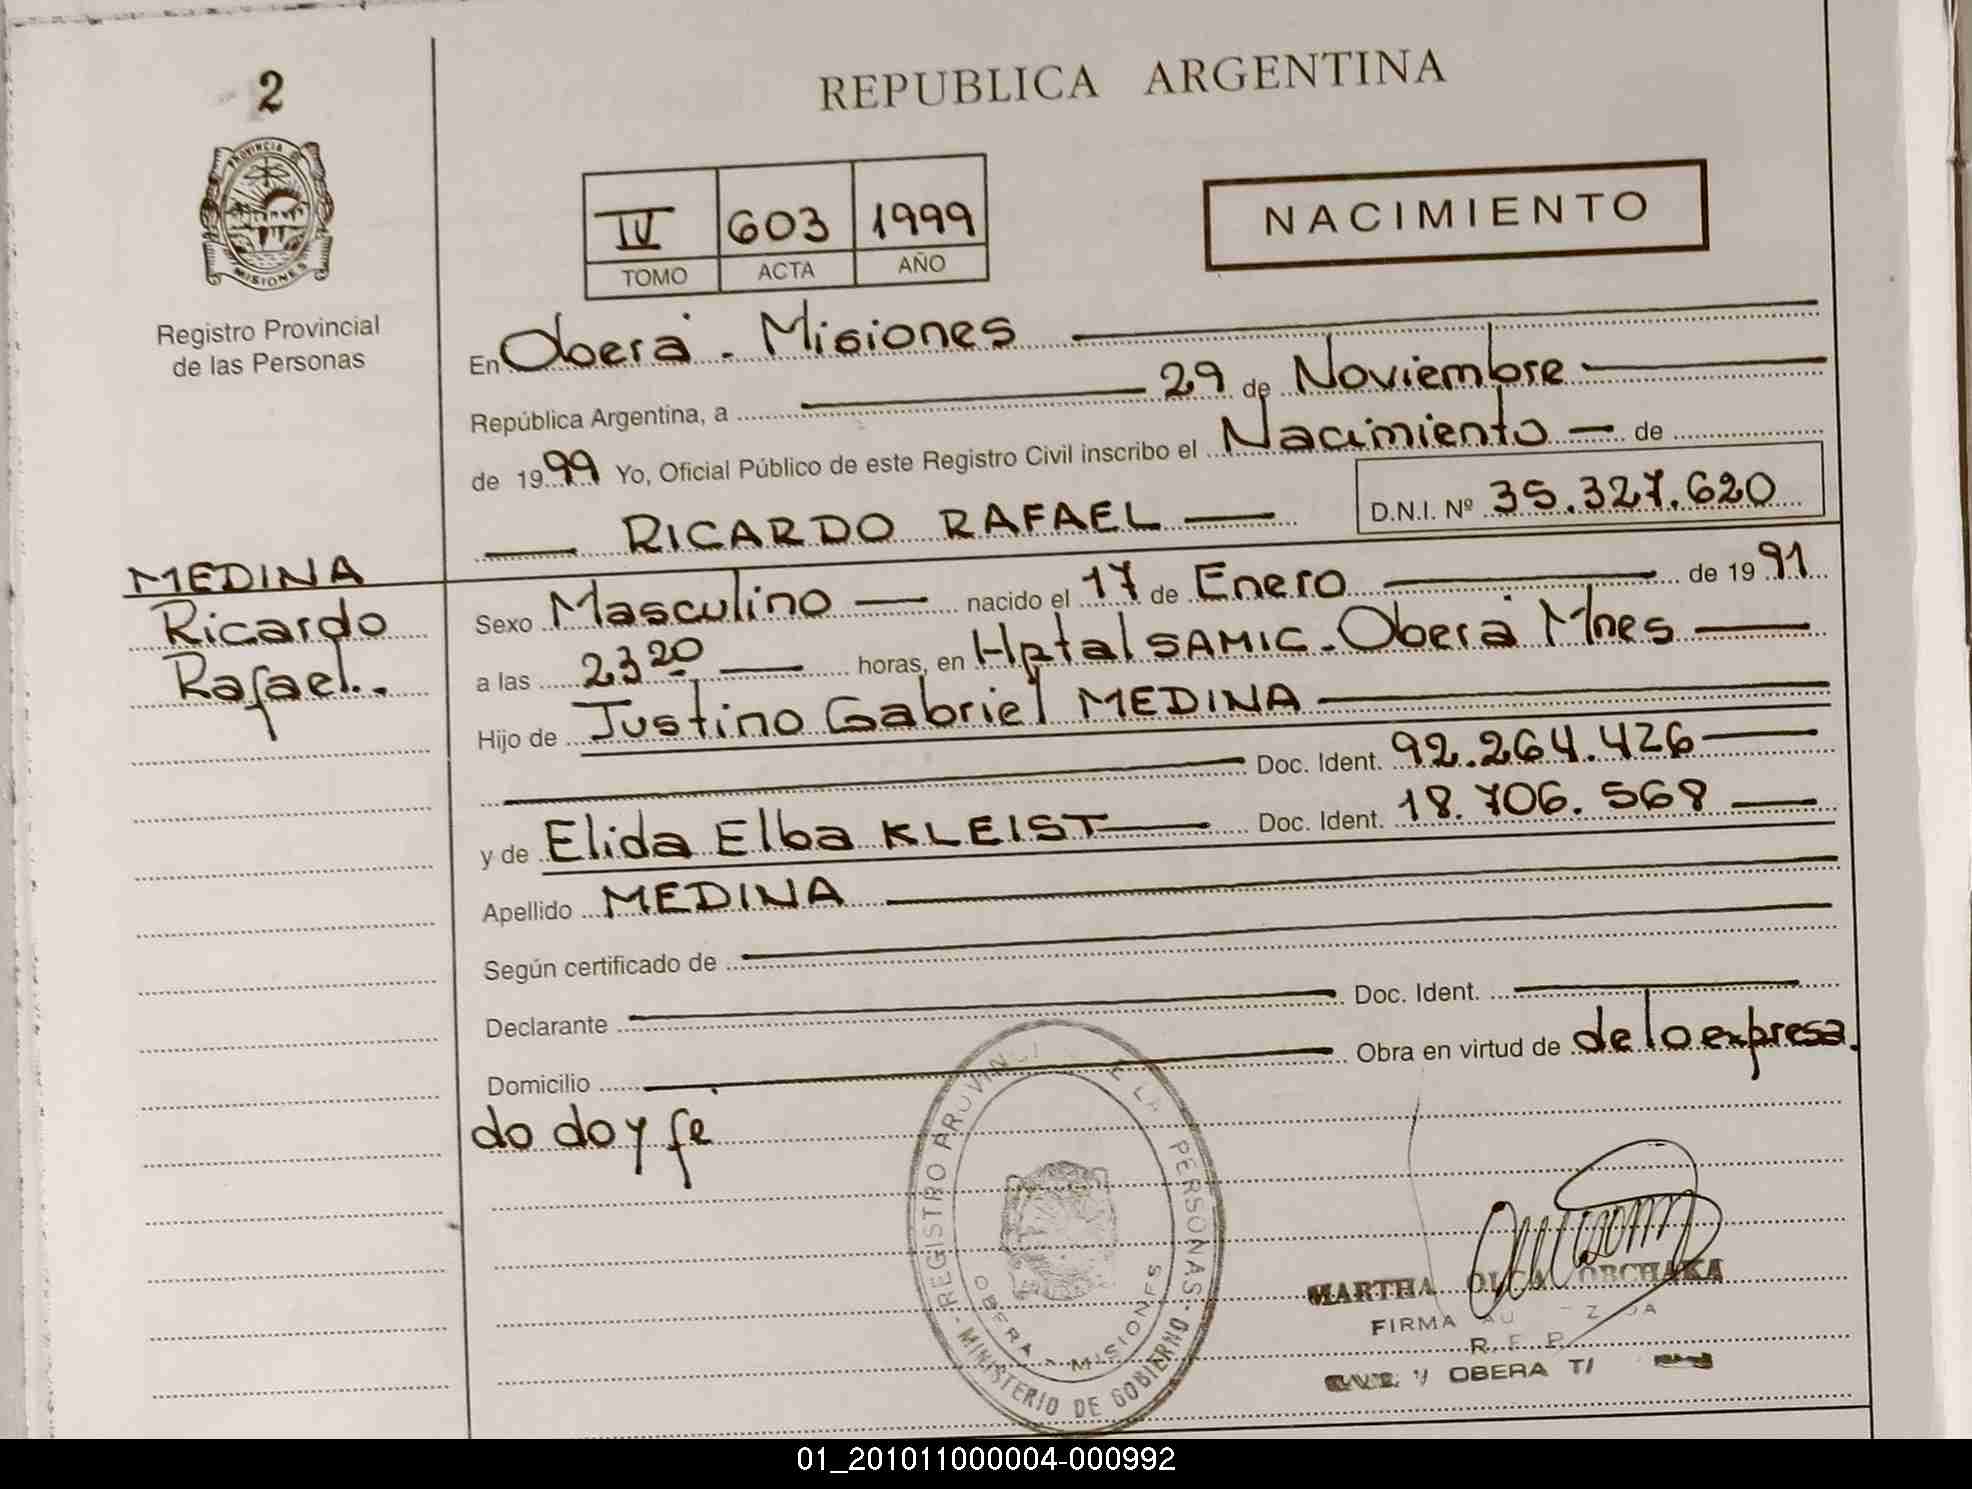 2
REPUBLICA ARGENTINA
PROVINCIA DE
MISIONES
IV 603 1999
TOMO ACTA AÑO
NACIMIENTO
Registro Provincial
de las Personas
En Oberá - Misiones
República Argentina, a 29 de Noviembre
de 1999 Yo, Oficial Público de este Registro Civil inscribo el Nacimiento de
RICARDO RAFAEL D.N.I. Nº 35.327.620
MEDINA
Ricardo
Rafael..
Sexo Masculino nacido el 17 de Enero de 1991
a las 23 20 horas, en Hptal SAMIC - Oberá Mnes
Hijo de Justino Gabriel MEDINA
Doc. Ident. 92.264.426
y de Elida Elba KLEIST Doc. Ident. 18.706.568
Apellido MEDINA
Según certificado de
Declarante Doc. Ident.
Domicilio Obra en virtud de de lo expresa.
do doy fé
REGISTRO PROVIN LA PERSONAS
OBERA - MISIONES
MINISTERIO DE GOBIERNO
MARTHA OLGA ORCHAKA
FIRMA
OBERA
01_201011000004-000992